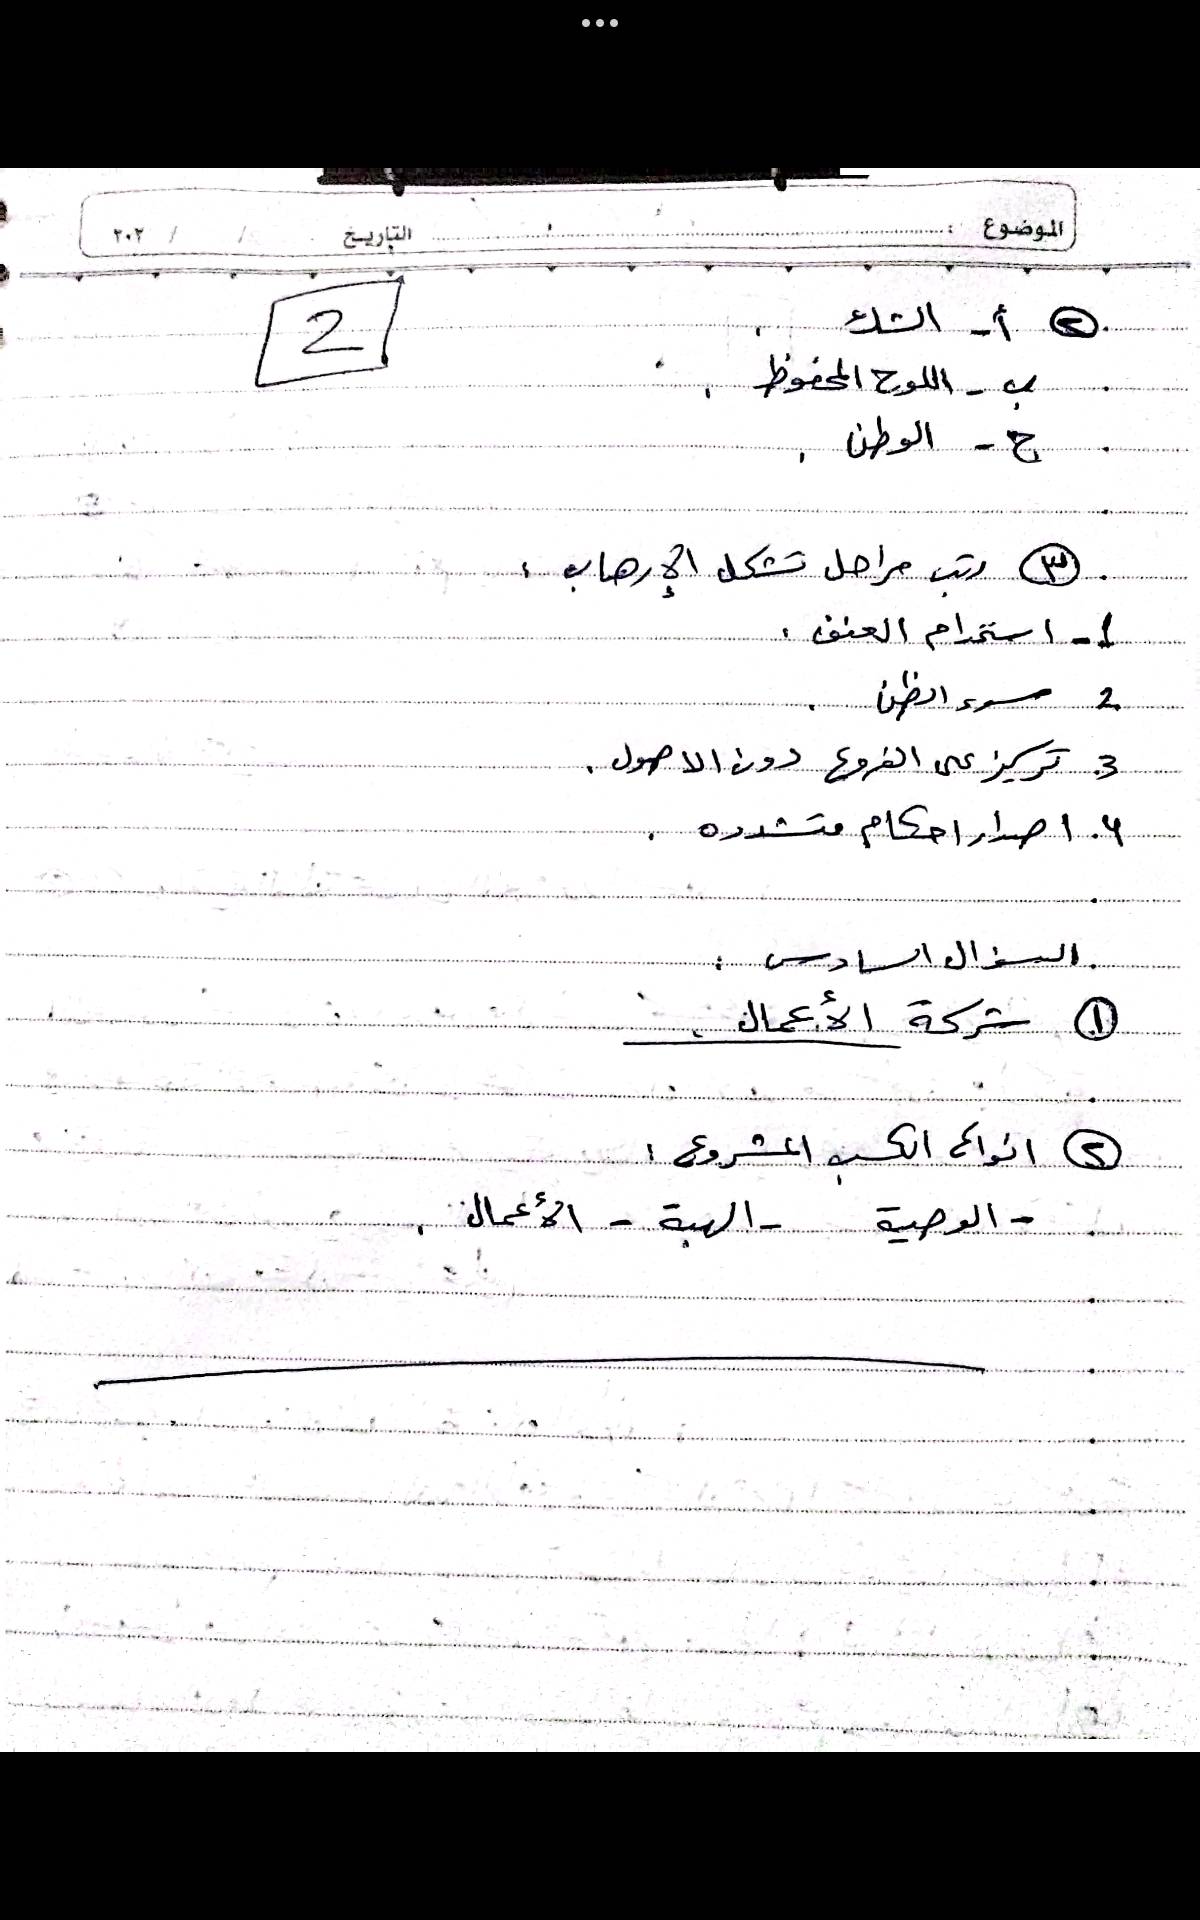 الموضوع : التاريخ / / ٢٠٢
2
② أ- الشك .
ب - اللوح المحفوظ .
ج - الوطن .
③ رتب مراحل تشكل الإرهاب :
1- استخدام العنف .
2 سوء الظن .
3. تركيز على الفروع دون الاصول .
4. اصدار احكام متشدده .
السؤال السادس :
① شركة الأعمال .
② انواع الكسب المشروع :
- الوصية - الهبة - الأعمال .